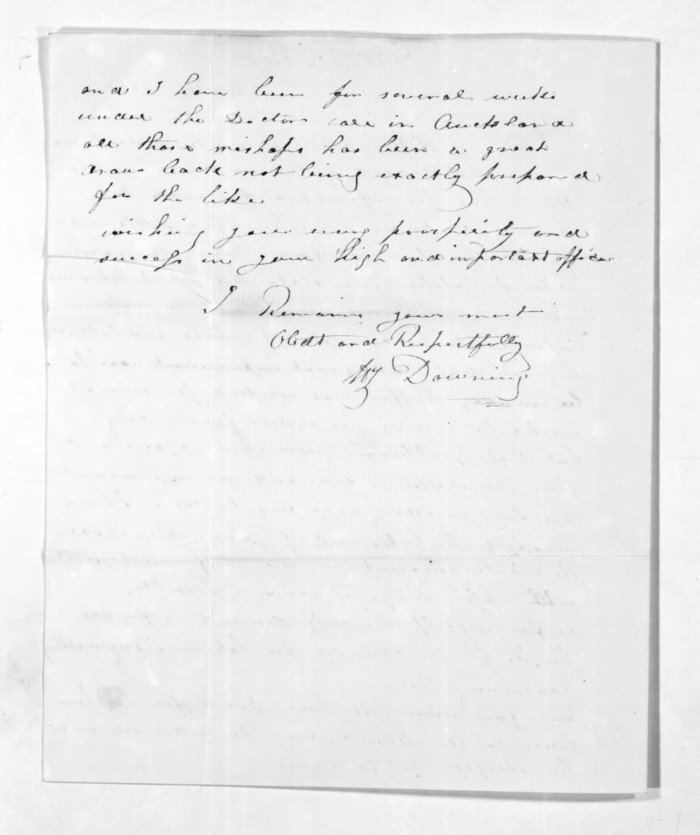 and I have been for several weeks
under the Doctors care in Auckland
all those mishaps has been a great
draw back not being exactly prepared
for the like
wishing your every prosperity and
success in your high and important office
I Remain your most
Obdt and Respectfully
Hy Downing